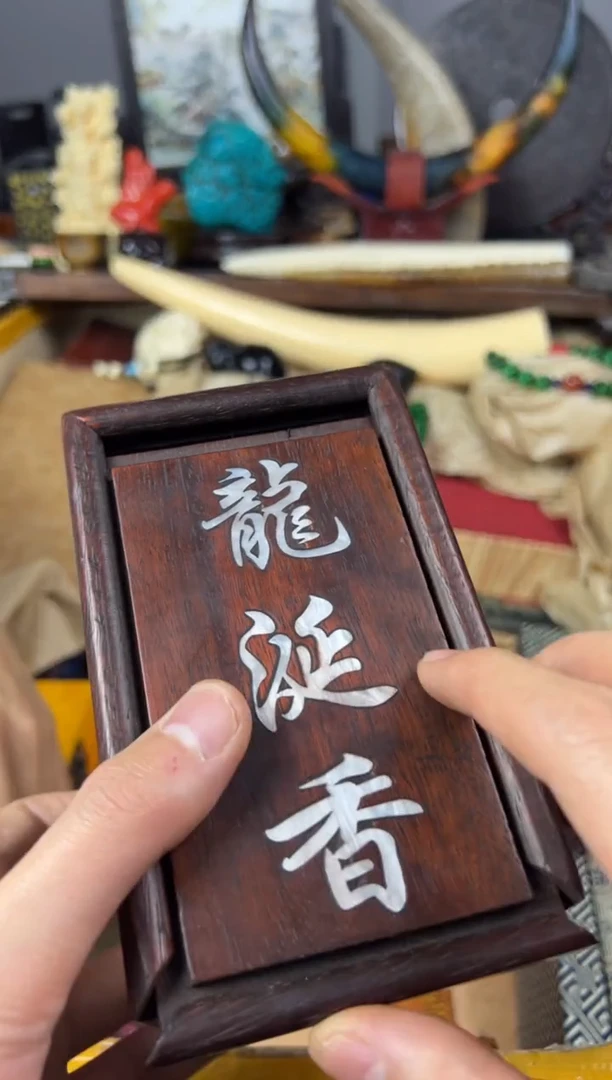 龍
涎
香